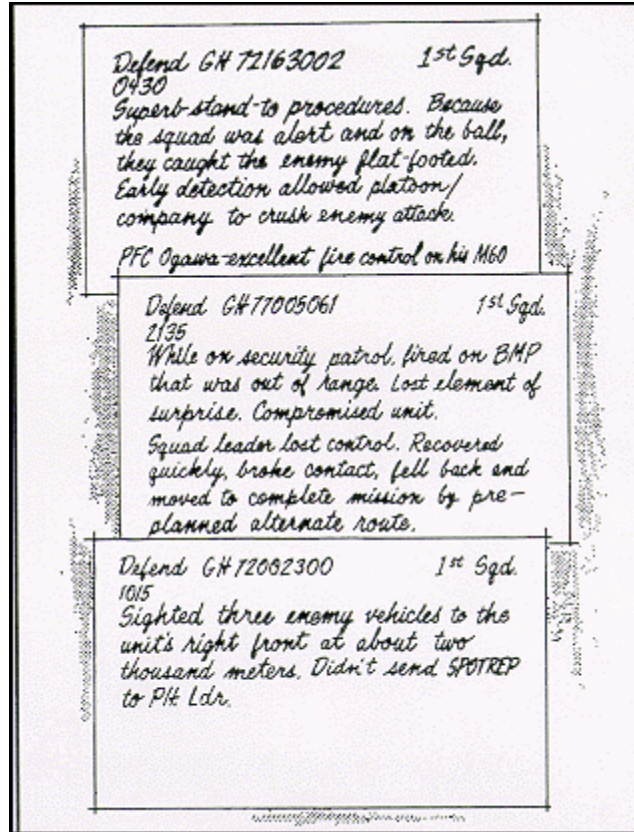 Defend GH 72163002 1st Sqd.
0430
Superb stand-to procedures. Because
the squad was alert and on the ball,
they caught the enemy flat-footed.
Early detection allowed platoon/
company to crush enemy attack.
PFC Ogawa-excellent fire control on his M60
Defend GH77005061 1st Sqd.
2135
While on security patrol, fired on BMP
that was out of range. Lost element of
surprise. Compromised unit.
Squad leader lost control. Recovered
quickly, broke contact, fell back and
moved to complete mission by pre-
planned alternate route.
Defend GH72002300 1st Sqd.
1015
Sighted three enemy vehicles to the
unit's right front at about two
thousand meters. Didn't send SPOTREP
to Plt Ldr.